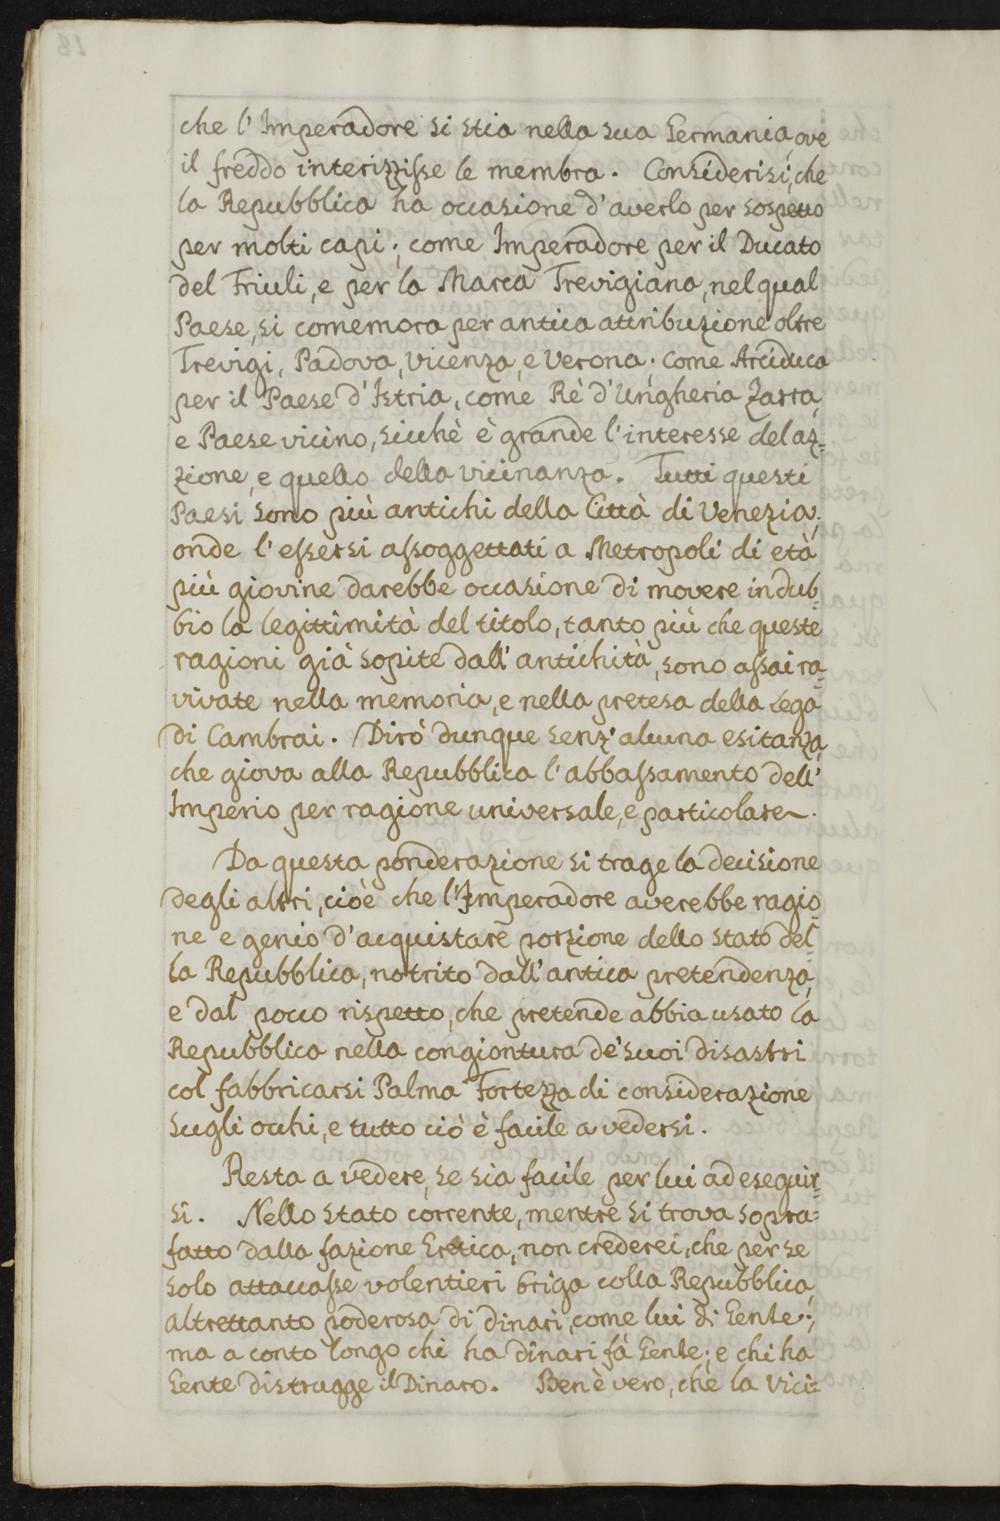 che l'Imperadore si stia nella sua Germania, ove
il freddo interizzisse le membra. Considerisi, che
la Repubblica ha occasione d'averlo per sospetto
per molti capi; come Imperadore per il Ducato
del Friuli, e per la Marca Trevigiana, nel qual
Paese, si comemora per antica attribuzione oltre
Trevigi, Padova, Vicenza, e Verona; come Arciduca
per il Paese d'Istria, come Rè d'Ungheria Zarra,
e Paese vicino, sicchè è grande l'interesse del az-
zione, e quello della vicinanza. Tutti questi
Paesi sono più antichi della Città di Venezia;
onde l'essersi assoggettati a Metropoli di età
più giovine darebbe occasione di movere in dub-
bio la legittimità del titolo, tanto più che queste
ragioni già sopite dall'antichità, sono assai ra-
vivate nella memoria, e nella pretesa della Lega
di Cambrai. Dirò dunque senz'alcuna esitanza,
che giova alla Repubblica l'abbassamento dell'
Imperio per ragione universale, e particolare.
Da questa ponderazione si trage la decisione
degli altri, cioè che l'Imperadore averebbe ragio-
ne e genio d'acquistare porzione dello stato del-
la Repubblica, notrito dall'antica pretendenza,
e dal pocco rispetto, che pretende abbia usato la
Repubblica nella congiontura de' suoi disastri
col fabbricarsi Palma Fortezza di considerazione
sugli occhi, e tutto ciò è facile a vedersi.
Resta a vedere, se sia facile per lui ad eseguir-
si. Nello stato corrente, mentre si trova sopra=
fatto dalla fazione Eretica, non crederei, che per se
solo attaccasse volentieri briga colla Repubblica,
altrettanto poderosa di dinari, come lui di Gente;
ma a conto longo chi ha dinari fà Gente; e chi ha
Gente distrugge il Dinaro. Ben è vero, che la Vici=